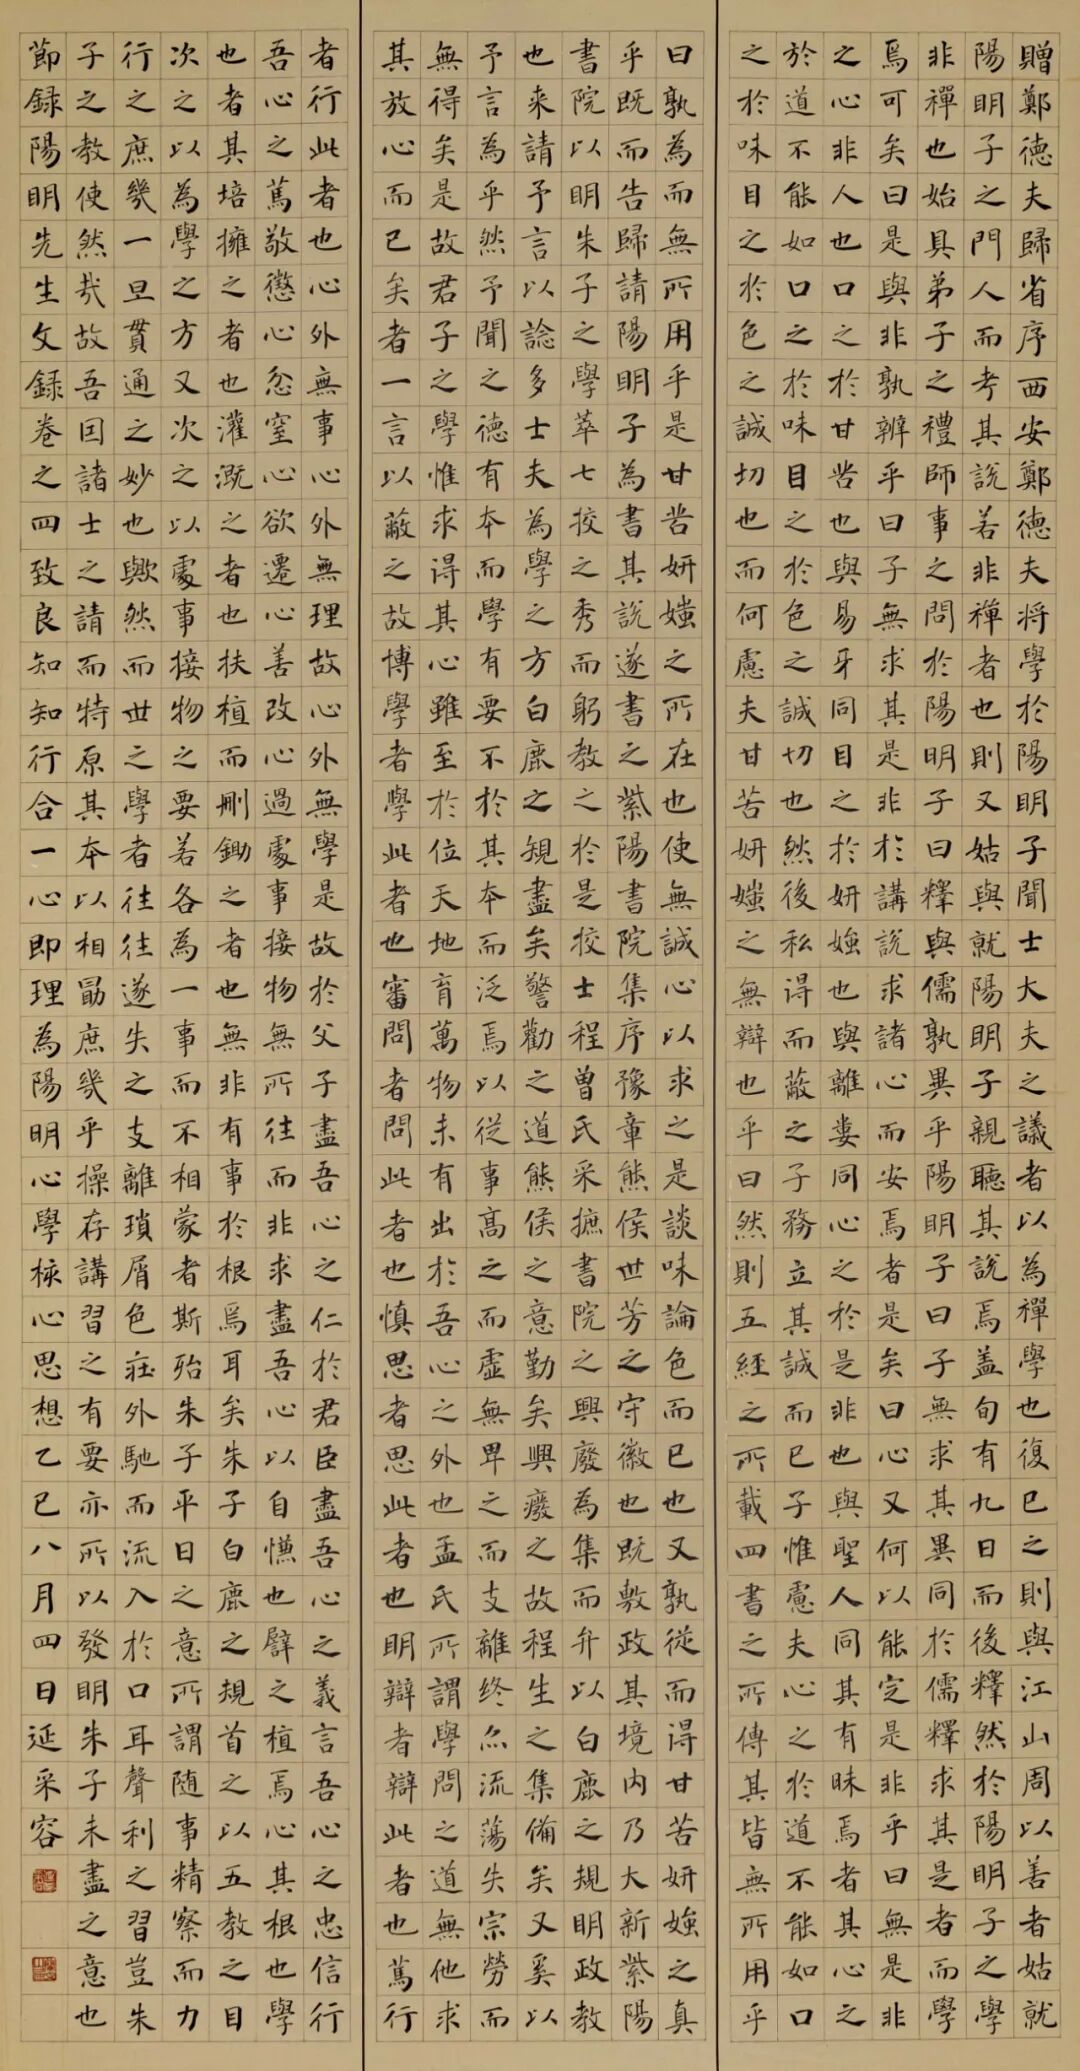 贈鄭德夫歸省序西安鄭德夫将學於陽明子聞士大夫之議者以為禪學也復已之則與江山周以善者姑就
陽明子之門人而考其說若非禪者也則又姑與就陽明子親聽其說焉盖旬有九日而後釋然於陽明子之學
非禪也始具弟子之禮師事之問於陽明子曰釋與儒孰異乎陽明子曰子無求其異同於儒釋求其是者而學
焉可矣曰是與非孰辨乎曰子無求其是非於講說求諸心而安焉者是矣曰心又何以能定是非乎曰無是非
之心非人也口之於甘苦也與易牙同目之於妍媸也與離婁同心之於是非也與聖人同其有昧焉者其心之
於道不能如口之於味目之於色之誠切也然後私得而蔽之子務立其誠而已子惟慮夫心之於道不能如口
之於味目之於色之誠切也而何慮夫甘苦妍媸之無辯也乎曰然則五經之所載四書之所傳其皆無所用乎
曰孰為而無所用乎是甘苦妍媸之所在也使無誠心以求之是談味論色而已也又孰從而得甘苦妍媸之真
乎既而告歸請陽明子為書其說遂書之紫陽書院集序豫章熊侯世芳之守徽也既敷政其境内乃大新紫陽
書院以明朱子之學萃七挍之秀而躬教之於是挍士程曾氏采摭書院之興廢為集而弁以白鹿之規明政教
也来請予言以諗多士夫為學之方白鹿之規盡矣警勸之道熊侯之意勤矣興癈之故程生之集備矣又奚以
予言為乎然予聞之德有本而學有要不於其本而泛焉以従事高之而虛無卑之而支離終亦流蕩失宗勞而
無得矣是故君子之學惟求得其心雖至於位天地育萬物未有出於吾心之外也孟氏所謂學問之道無他求
其放心而已矣者一言以蔽之故博學者學此者也審問者問此者也慎思者思此者也明辯者辯此者也篤行
者行此者也心外無事心外無理故心外無學是故於父子盡吾心之仁於君臣盡吾心之義言吾心之忠信行
吾心之篤敬懲心忿窒心欲遷心善改心過處事接物無所往而非求盡吾心以自慊也譬之植焉心其根也學
也者其培擁之者也灌溉之者也扶植而刪鋤之者也無非有事於根焉耳矣朱子白鹿之規首之以五教之目
次之以為學之方又次之以處事接物之要若各為一事而不相蒙者斯殆朱子平日之意所謂随事精察而力
行之庶幾一旦貫通之妙也歟然而世之學者往往遂失之支離瑣屑色莊外馳而流入於口耳聲利之習豈朱
子之教使然哉故吾因諸士之請而特原其本以相勗庶幾乎操存講習之有要亦所以發明朱子未盡之意也
節録陽明先生文録卷之四致良知知行合一心即理為陽明心學核心思想乙巳八月四日延采容